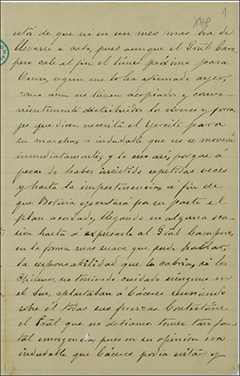 está de que ni en un mes mas ha de
llevarse á cabo, pues aunque el Gral Cam
pero sale al fin el Lúnes próximo para
Oruro, segun me lo ha afirmado ayer,
como aun no tienen acopiados, y conve-
nientemente distribuido los víveres y forra
jes que dicen necesita el Ejército para
su marcha, es indudable que no se moverá
inmediatamente; y lo mas así, porque á
pesar de haber insistido repetidas veces
y hasta la impertinencia, á fin de
que Bolivia ejecutára por su parte el
plan acordado, llegando en alguna oca
sion hasta á expresarle al Gral Campero,
en la forma mas suave que pude hablar,
la responsabilidad que le cabría, si los
Chilenos, no teniendo cuidado ninguno en
el Sur, aplastaban á Cáceres reuniendo
sobre él todas sus fuerzas. Contestóme
el Gral que no debiamos temer tan fa
tal emergencia, pues en su opinion era
indudable que Cáceres podia evitar y